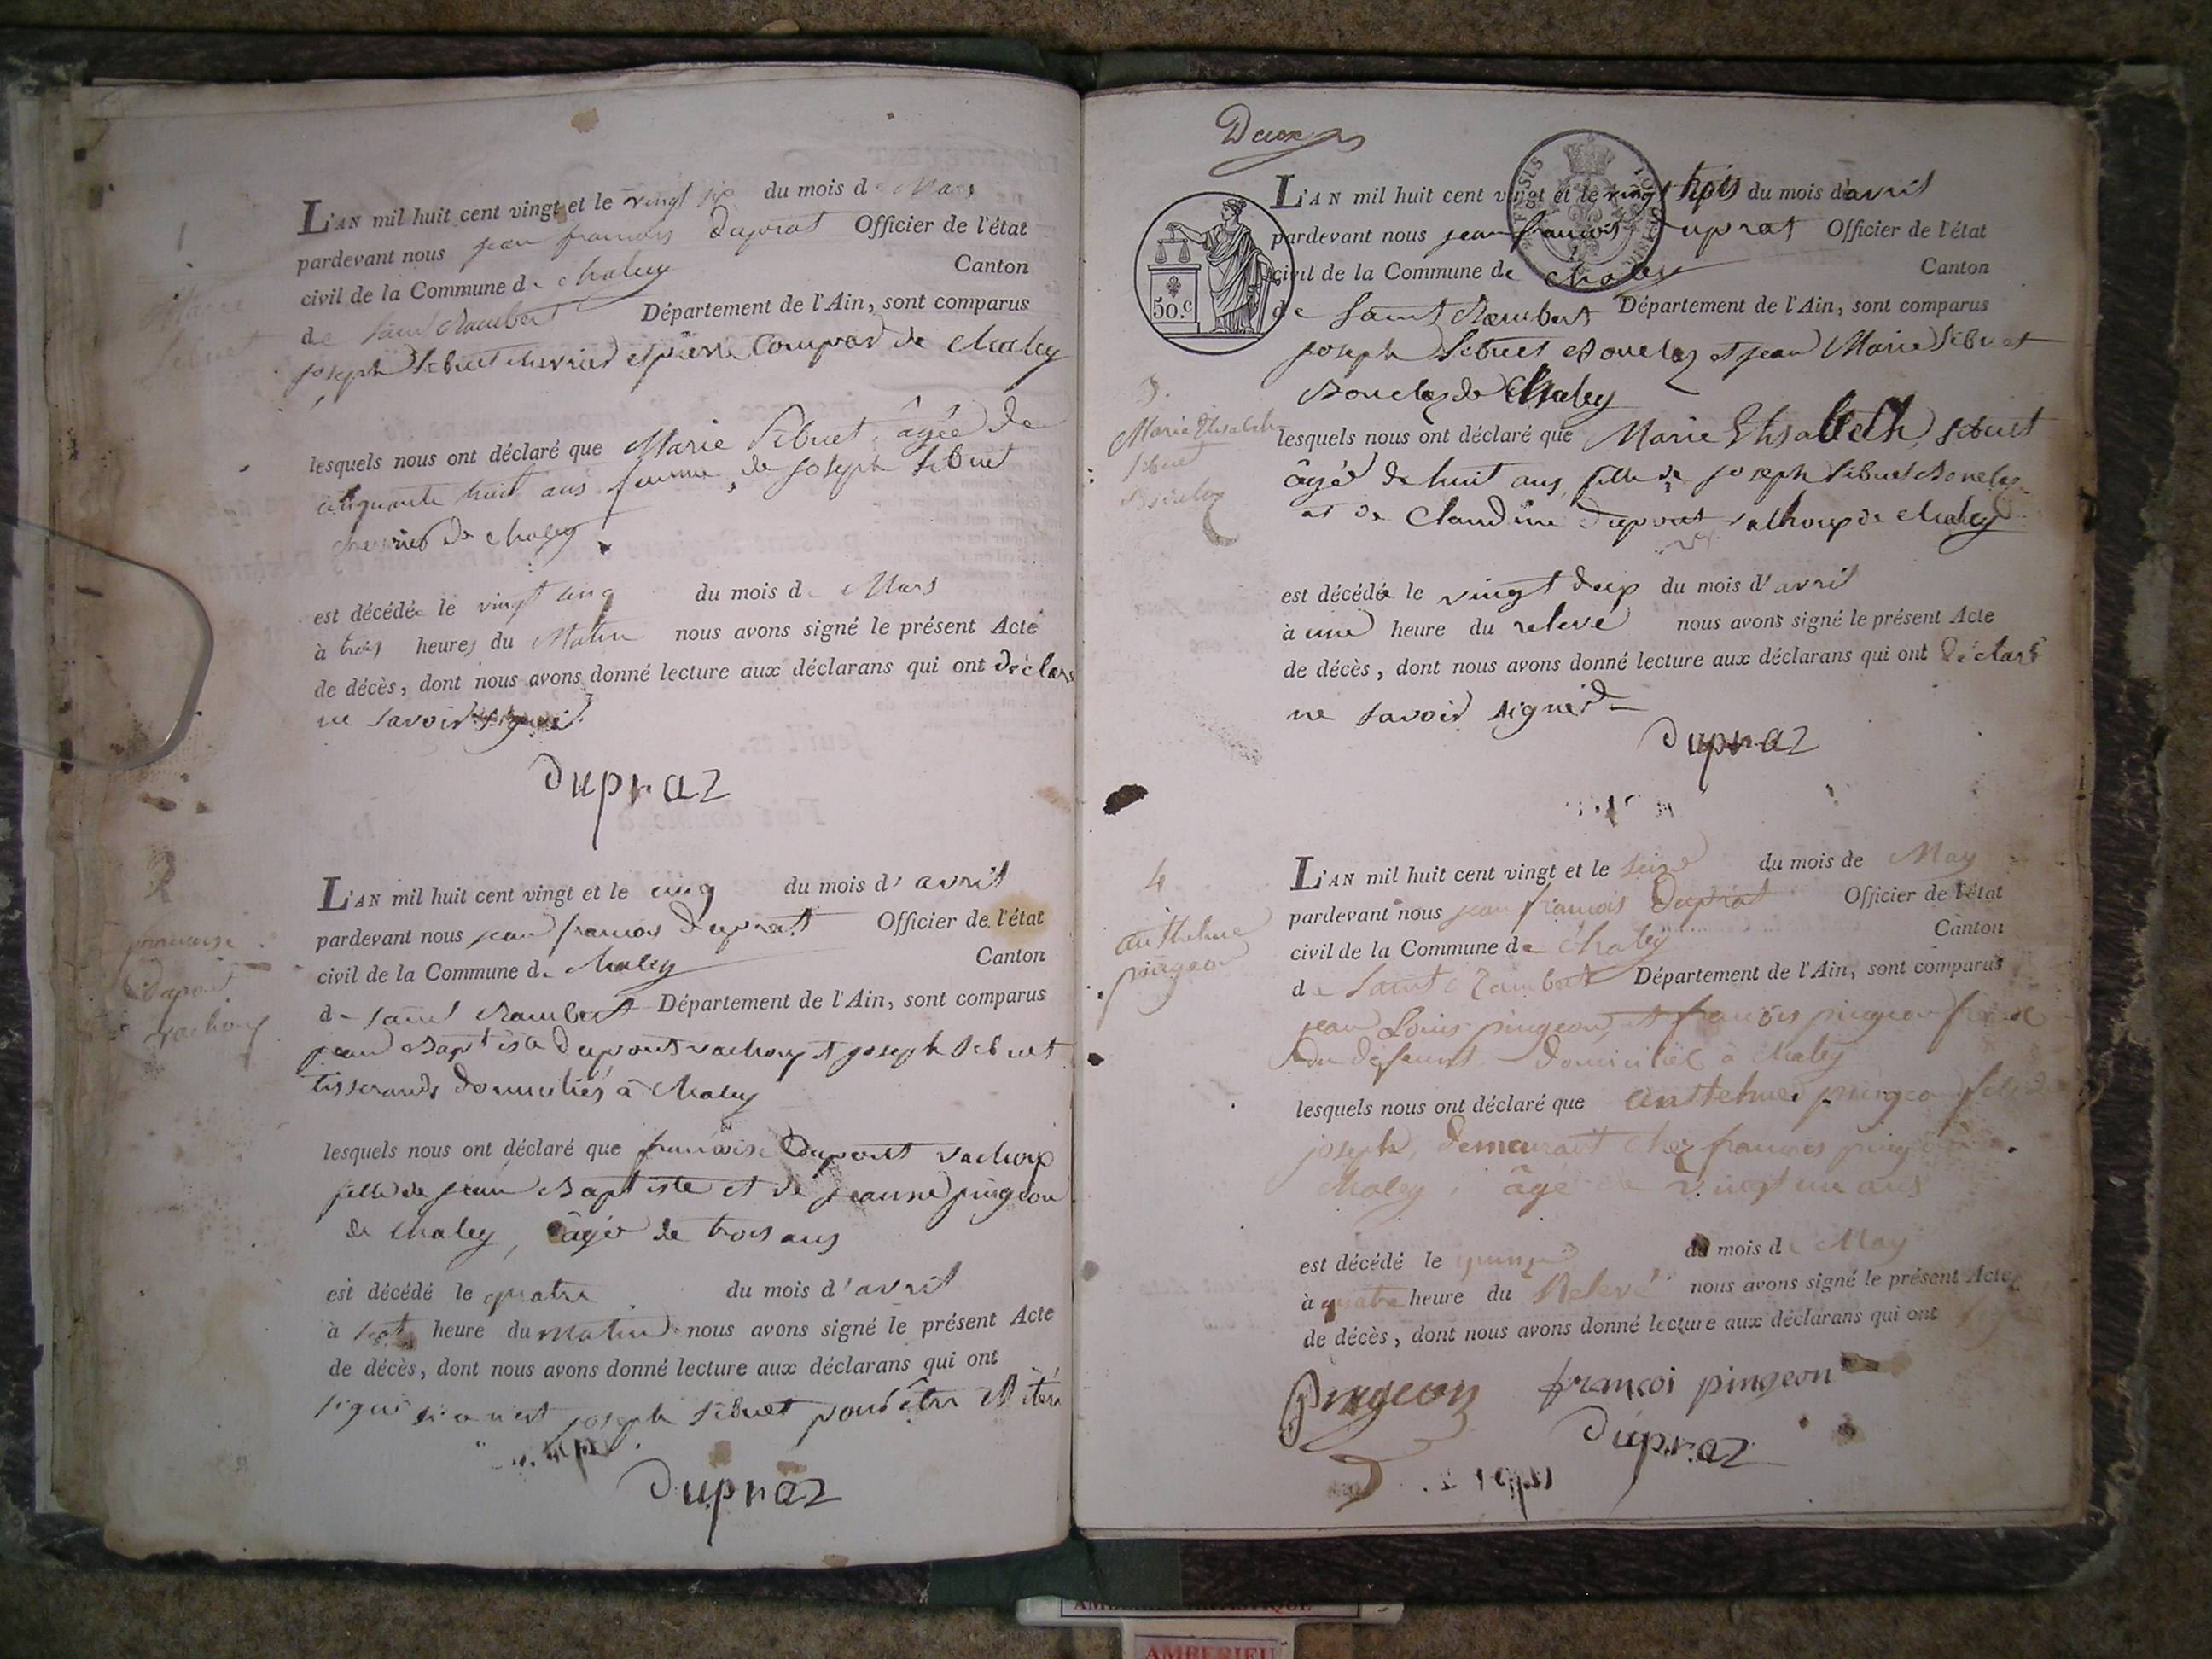 1
Marie
Sibuet
L'AN mil huit cent vingt et le vingt six du mois de Mars
pardevant nous jean francois Duprat Officier de l'état
civil de la Commune de chaley Canton
de Saint Rambert Département de l'Ain, sont comparus
joseph Sibuet chevrier et pierre Compar de chaley
lesquels nous ont déclaré que Marie Sibuet, âgée de
cinquante huit ans femme de joseph Sibuet
chevrier de chaley
est décédée le vingt cinq du mois de Mars
à trois heures du Matin nous avons signé le présent Acte
de décès, dont nous avons donné lecture aux déclarans qui ont déclaré
ne savoir signer
Dupraz
2
francoise
Dupont
vachoux
L'AN mil huit cent vingt et le cinq du mois d'avril
pardevant nous jean francois Duprat Officier de l'état
civil de la Commune de chaley Canton
de saint Rambert Département de l'Ain, sont comparus
jean Baptiste dupont vachoux et joseph Sibuet
tisserands domiciliés à chaley
lesquels nous ont déclaré que francoise Dupont vachoux
fille de jean Baptiste et de jeanne pingeon
de chaley, âgé de trois ans
est décédé le quatre du mois d'avril
à sept heure du matin nous avons signé le présent Acte
de décès, dont nous avons donné lecture aux déclarans qui ont
signé joseph Sibuet pour être
Dupraz
Deux
50.c
L'AN mil huit cent vingt et le vingt trois du mois d'avril
pardevant nous jean francois Duprat Officier de l'état
civil de la Commune de chaley Canton
de Saint Rambert Département de l'Ain, sont comparus
joseph Sibuet Bouclaz et jean Marie Sibuet
Bouclaz de Chaley
3.
Marie Elisabeth
Sibuet
Bouclaz
lesquels nous ont déclaré que Marie Elisabeth Sibuet
âgé de huit ans, fille de joseph Sibuet Bouclaz
et de Claudine Dupont vachoux de chaley
est décédé le vingt deux du mois d'avril
à une heure du relevé nous avons signé le présent Acte
de décès, dont nous avons donné lecture aux déclarans qui ont déclaré
ne savoir signer
Dupraz
4
anthelme
pingeon
L'AN mil huit cent vingt et le seize du mois de May
pardevant nous jean francois Duprat Officier de l'état
civil de la Commune de Chaley Canton
de Saint Rambert Département de l'Ain, sont comparus
jean Louis pingeon, et francois pingeon
du deffunt domiciliés à chaley
lesquels nous ont déclaré que anthelme pingeon fils de
joseph, demeurait chez francois pingeon
chaley, âgé de vingt un ans
est décédé le quinze du mois de May
à quatre heure du Relevé nous avons signé le présent Acte
de décès, dont nous avons donné lecture aux déclarans qui ont
pingeon françoi pingeon
Dupraz
AMBERIEU